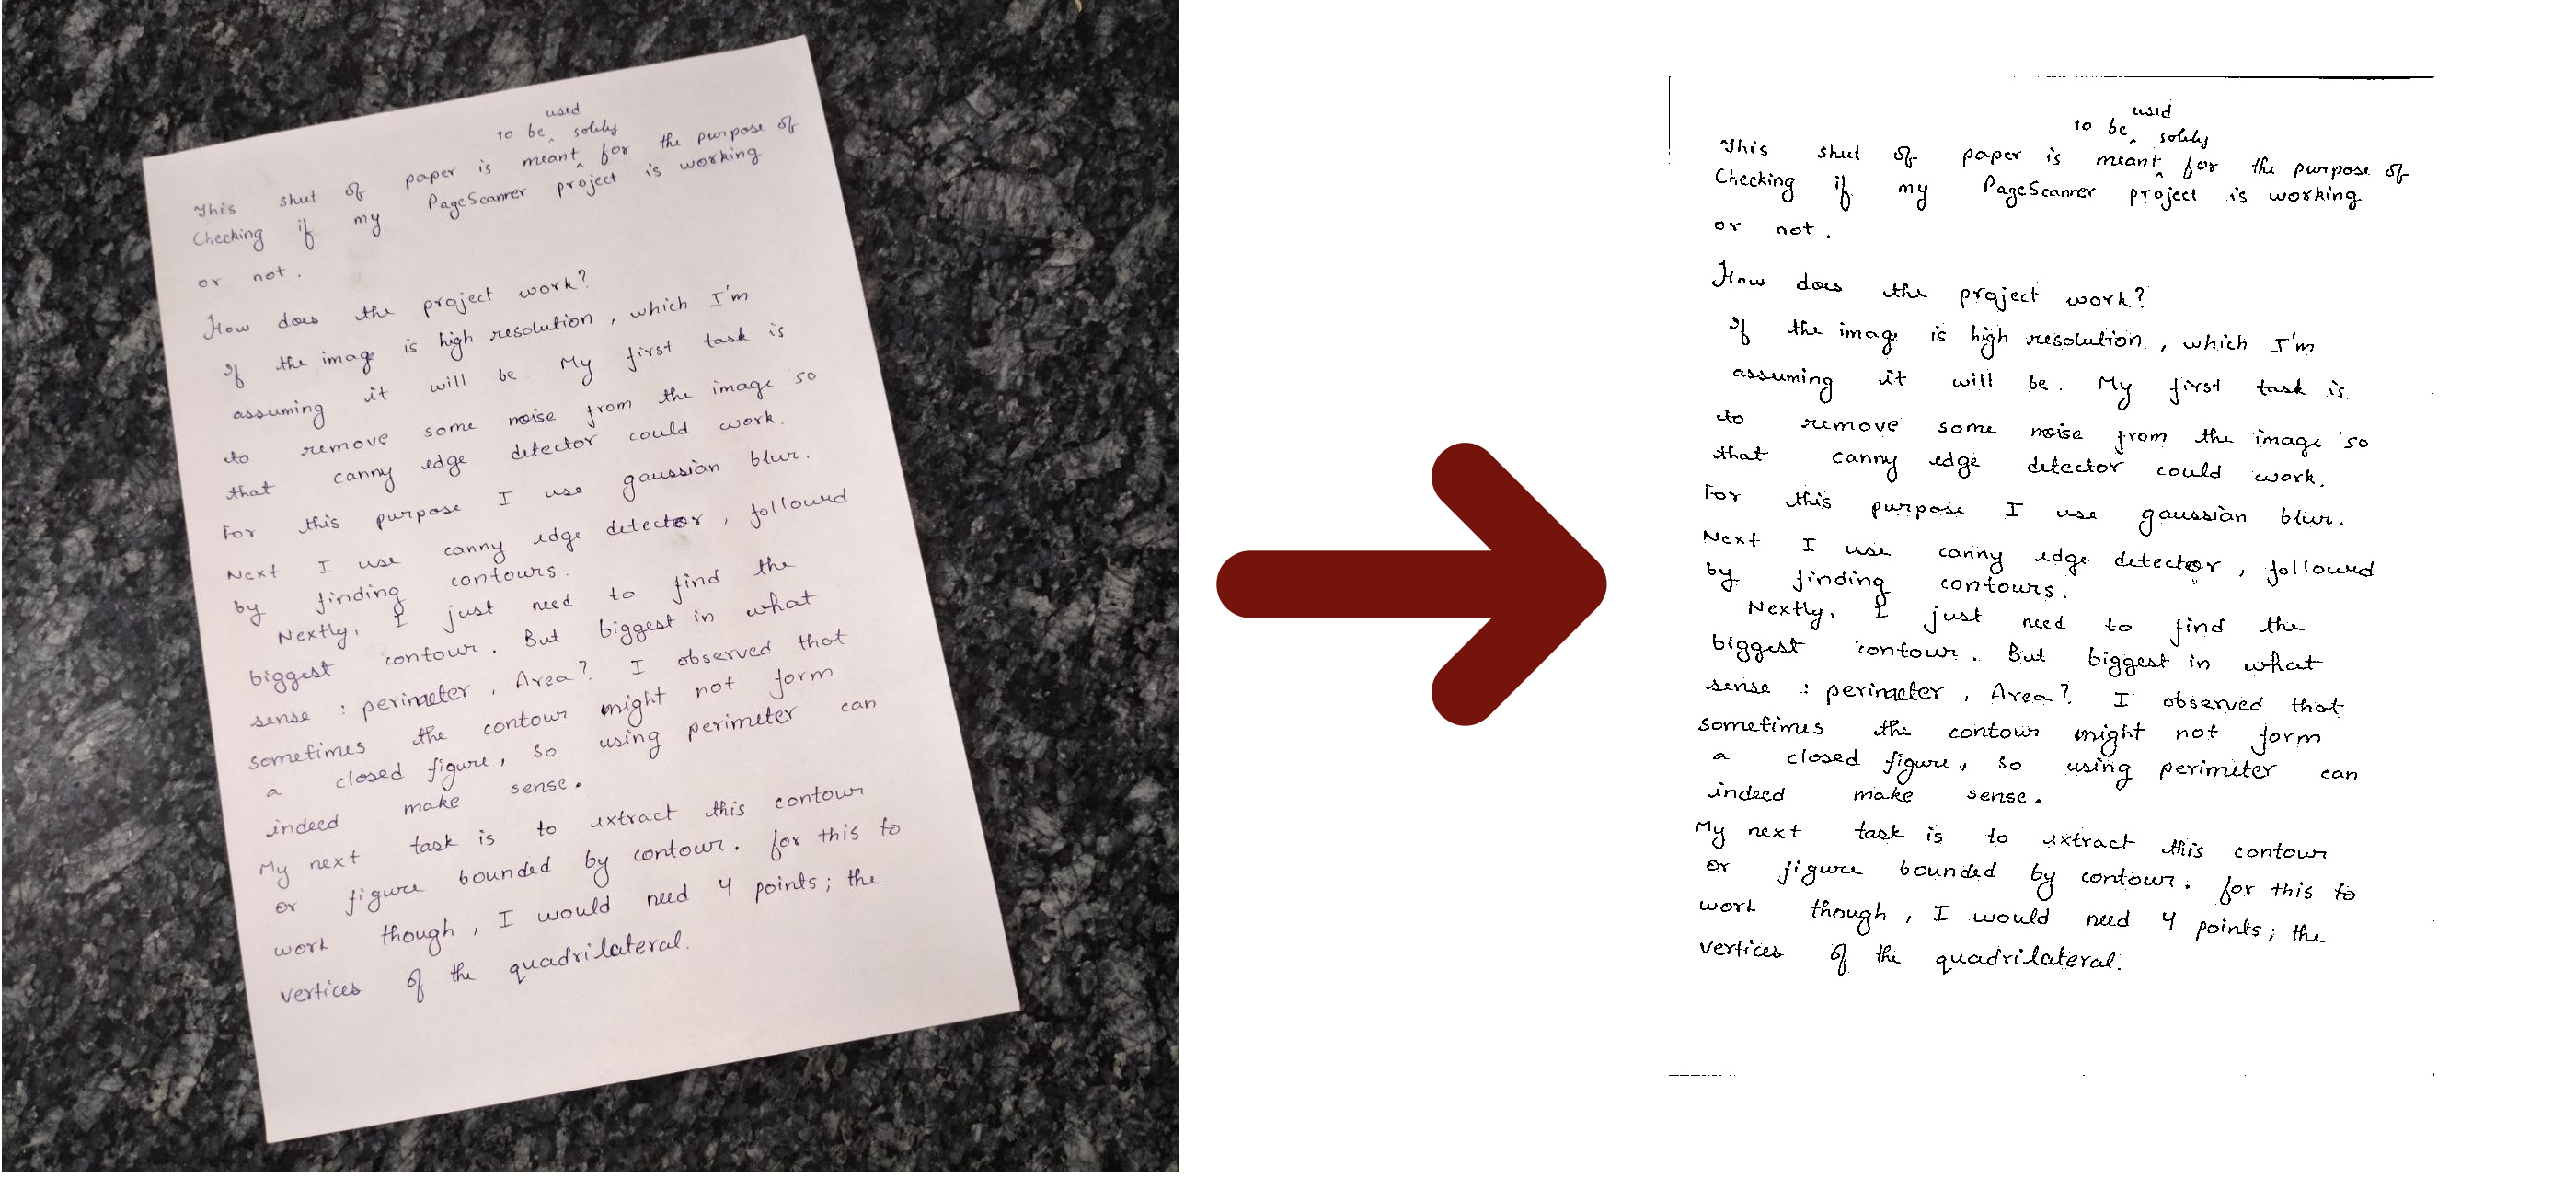 used
to be ‸ solely
This sheet of paper is meant ‸ for the purpose of
Checking if my PageScanner project is working
or not.
How does the project work?
If the image is high resolution, which I'm
assuming it will be. My first task is
to remove some noise from the image so
that canny edge detector could work.
For this purpose I use gaussian blur.
Next I use canny edge detector, followed
by finding contours.
Nextly, I just need to find the
biggest contour. But biggest in what
sense : perimeter, Area? I observed that
sometimes the contour might not form
a closed figure, so using perimeter can
indeed make sense.
My next task is to extract this contour
or figure bounded by contour. for this to
work though, I would need 4 points; the
vertices of the quadrilateral.
used
to be ‸ solely
This sheet of paper is meant ‸ for the purpose of
Checking if my PageScanner project is working
or not.
How does the project work?
If the image is high resolution, which I'm
assuming it will be. My first task is
to remove some noise from the image so
that canny edge detector could work.
For this purpose I use gaussian blur.
Next I use canny edge detector, followed
by finding contours.
Nextly, I just need to find the
biggest contour. But biggest in what
sense : perimeter, Area? I observed that
sometimes the contour might not form
a closed figure, so using perimeter can
indeed make sense.
My next task is to extract this contour
or figure bounded by contour. for this to
work though, I would need 4 points; the
vertices of the quadrilateral.